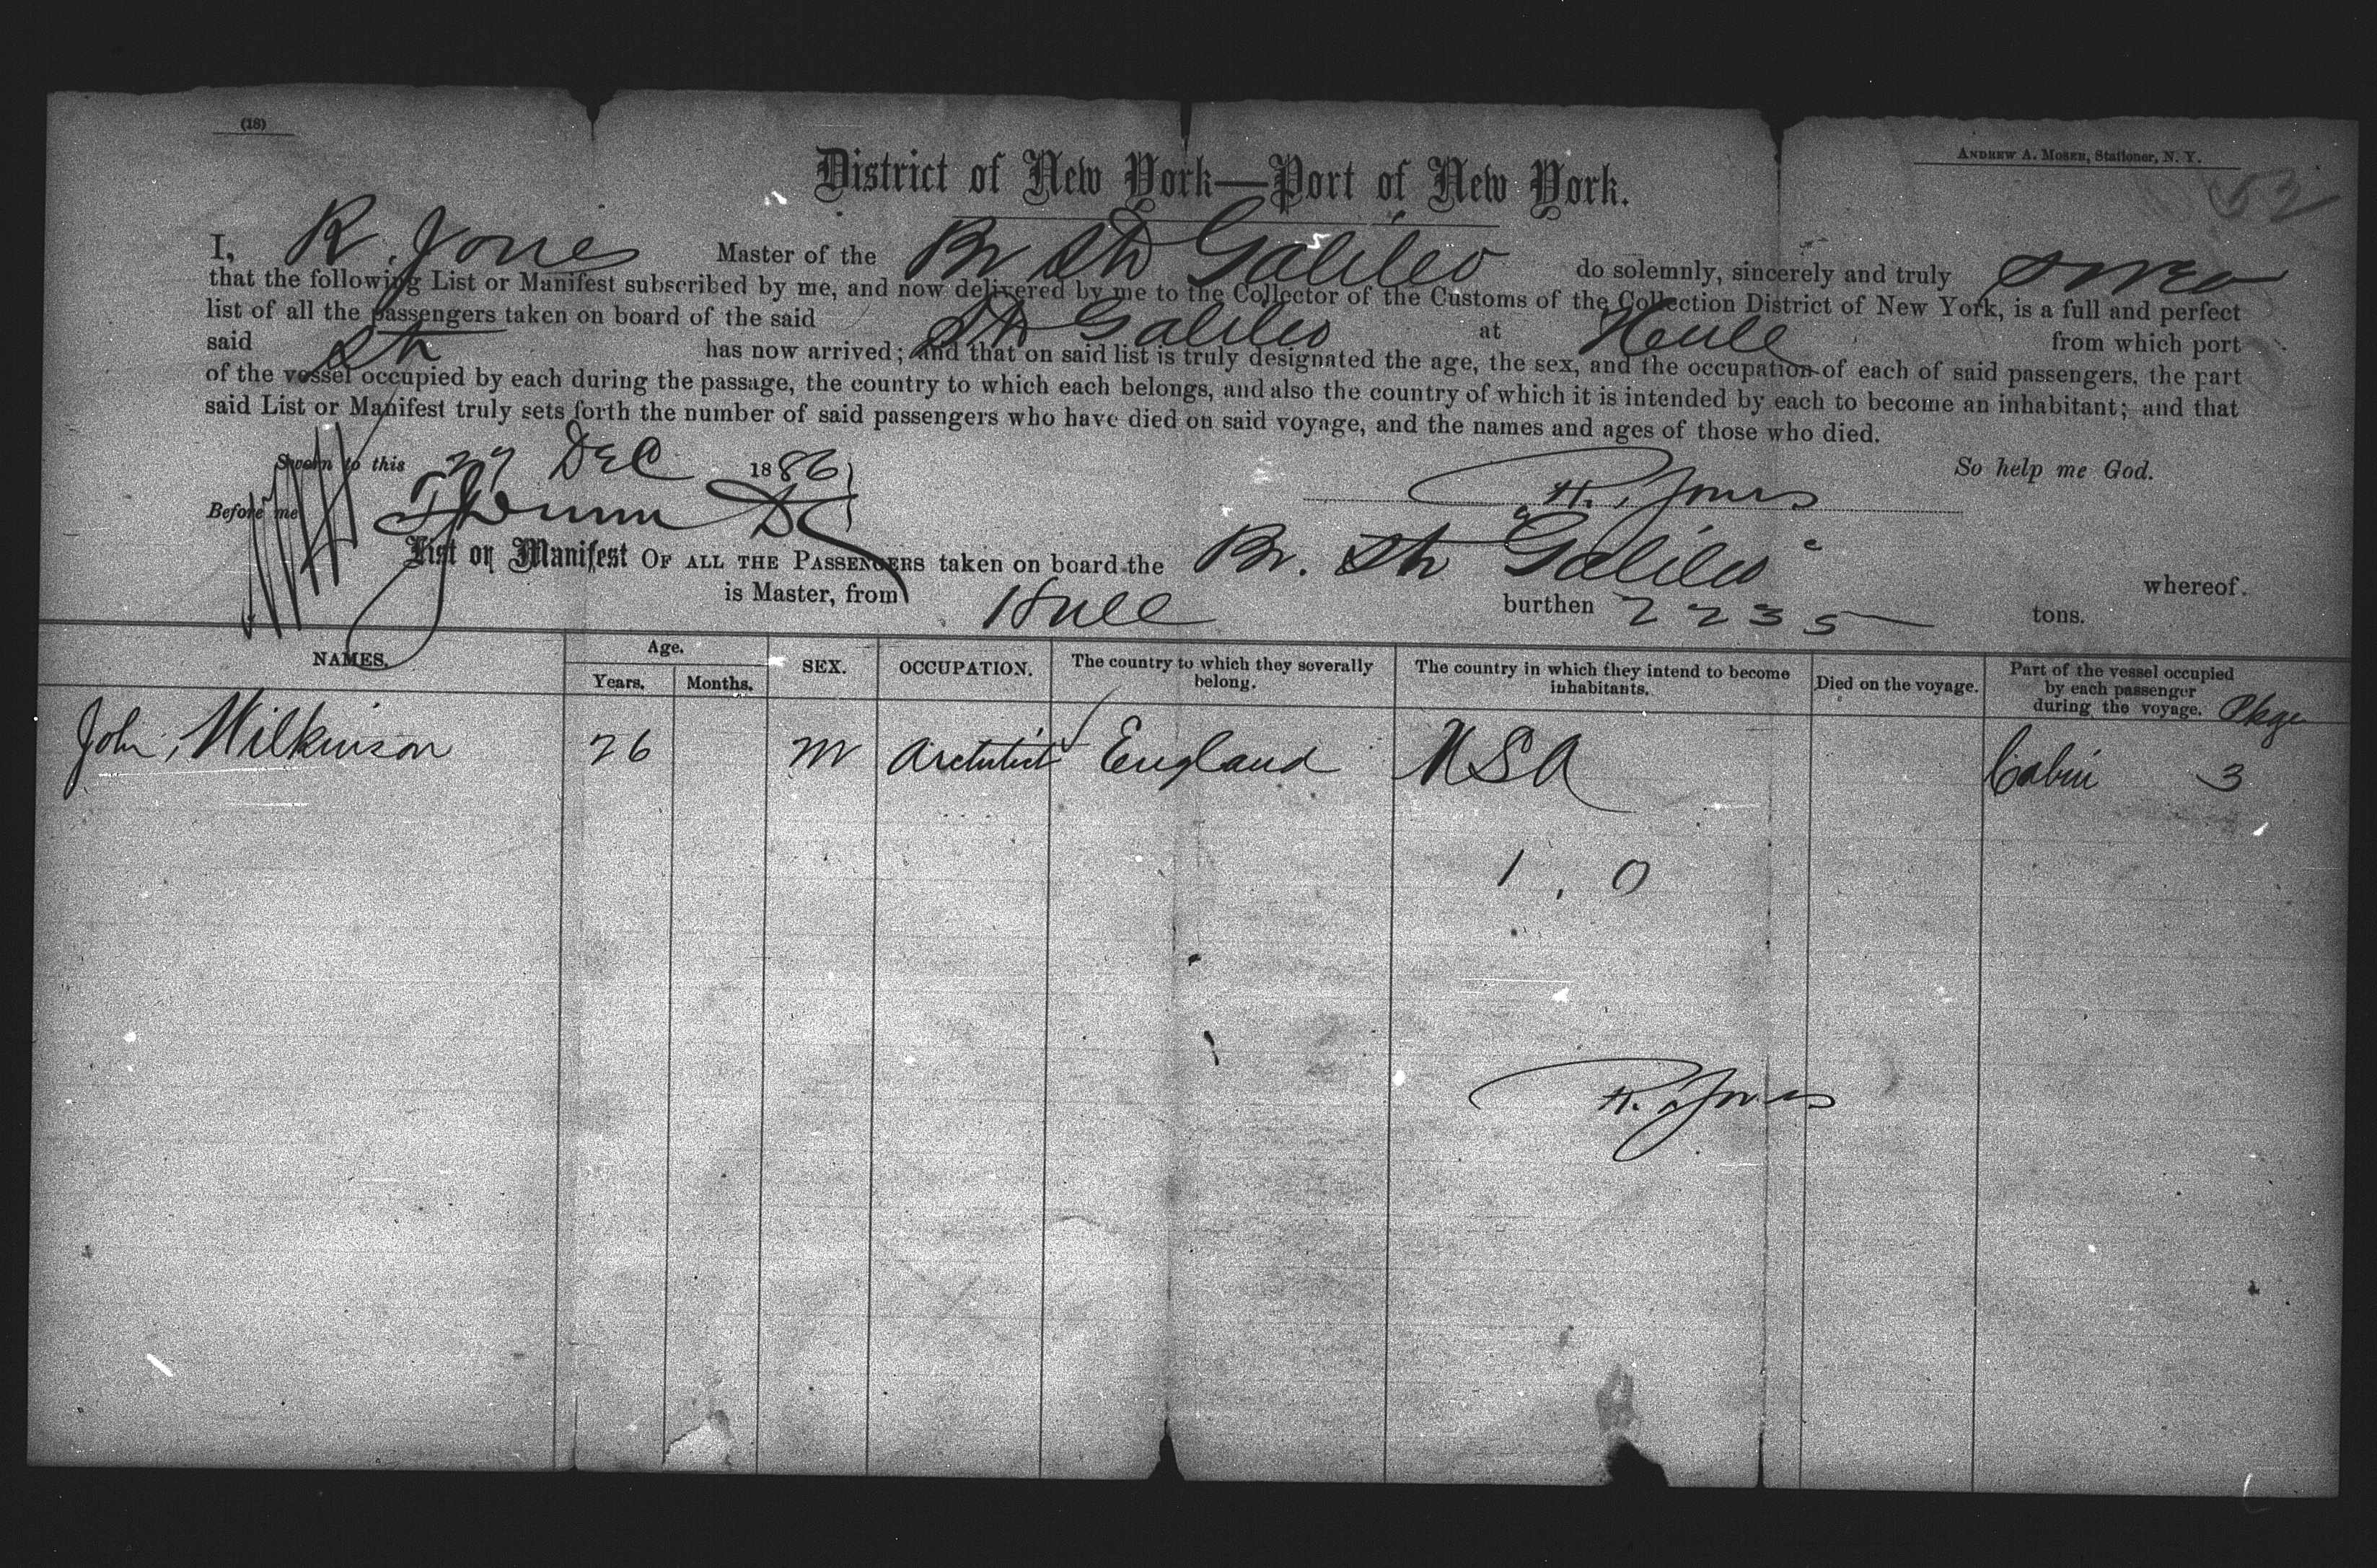 (18)
ANDREW A. MOSER, Stationer, N. Y.
52
District of New York—Port of New York.
I, R. Jones Master of the Br Str Galileo do solemnly, sincerely and truly swear
that the following List or Manifest subscribed by me, and now delivered by me to the Collector of the Customs of the Collection District of New York, is a full and perfect
list of all the passengers taken on board of the said Str Galileo at Hull from which port
said Str has now arrived; and that on said list is truly designated the age, the sex, and the occupation of each of said passengers, the part
of the vessel occupied by each during the passage, the country to which each belongs, and also the country of which it is intended by each to become an inhabitant; and that
said List or Manifest truly sets forth the number of said passengers who have died on said voyage, and the names and ages of those who died.
Sworn to this 27 Dec 1886 So help me God.
Before me R. Jones
List or Manifest OF ALL THE PASSENGERS taken on board the Br. Str "Galileo" whereof
is Master, from Hull burthen 2235 tons.
NAMES. Age. Years. Months. SEX. OCCUPATION. The country to which they severally belong. The country in which they intend to become inhabitants. Died on the voyage. Part of the vessel occupied by each passenger during the voyage. Pkgs
John Wilkinson 26 M Architect England USA Cabin 3
1 . 0
R. Jones